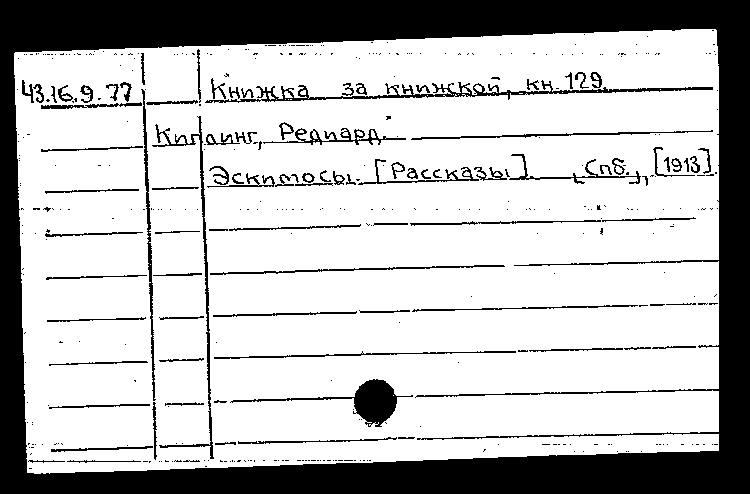 43.16.9.77 Книжка за книжкой, кн. 129.
Киплинг, Редиард.
Эскимосы. [Рассказы]. [Спб.], [1913].